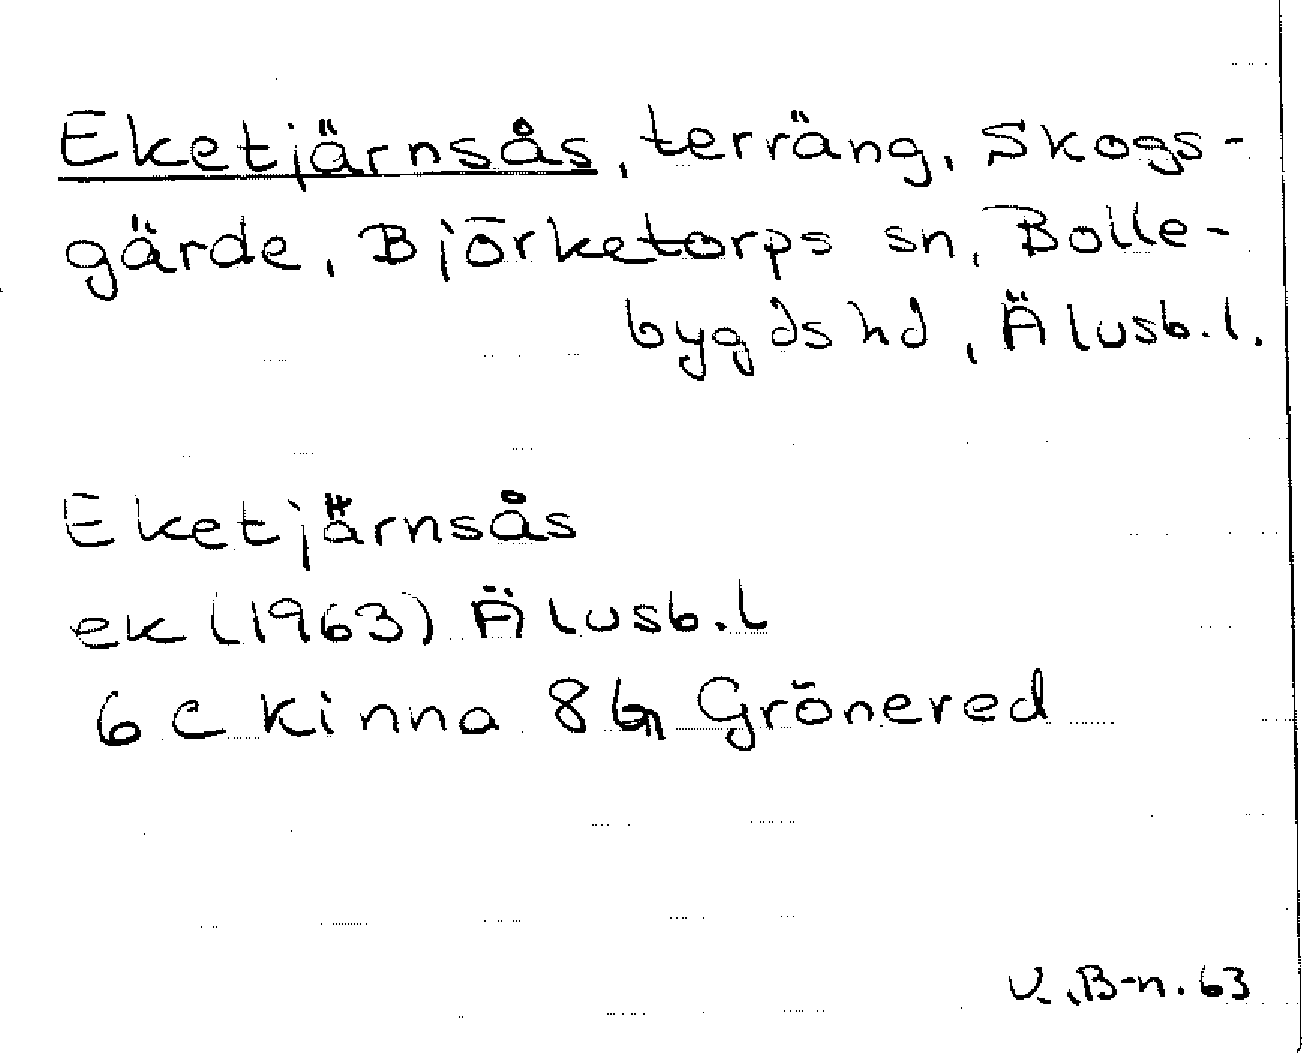 Eketjärnsås, terräng, Skogs-
gärde, Björketorps sn, Bolle-
bygds hd, Älvsb.l.
Eketjärnsås
ek (1963) Älvsb.l
6c Kinna 8h Grönered
V. B-n. 63